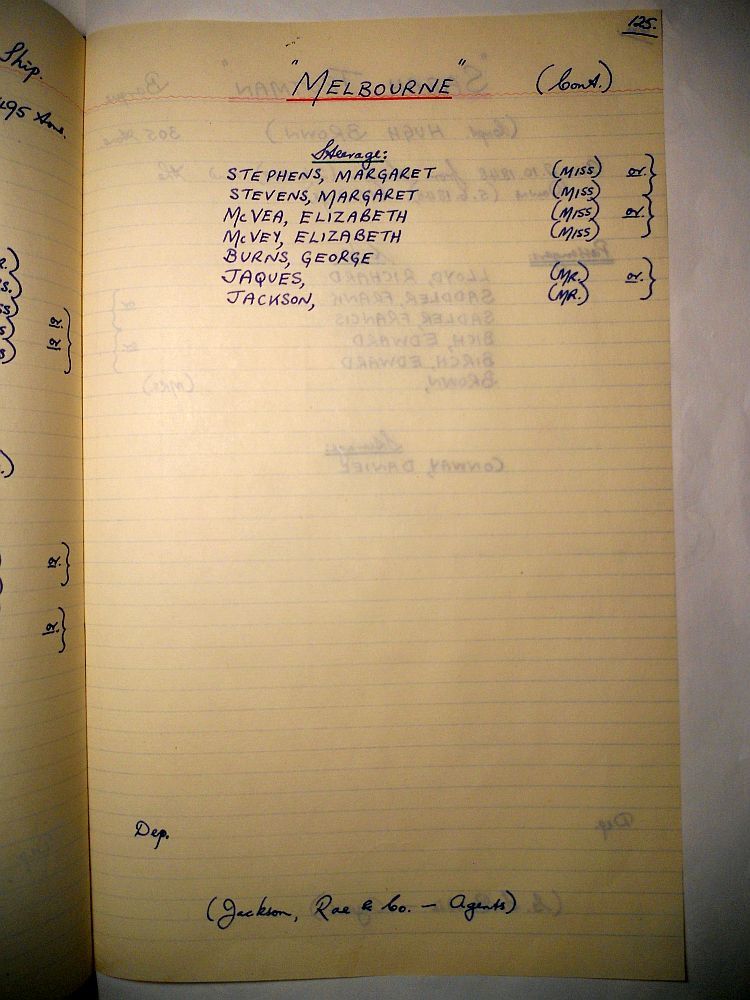 125.
"MELBOURNE" (Cont.)
Steerage:
STEPHENS, MARGARET (MISS) or.
STEVENS, MARGARET (MISS)
McVEA, ELIZABETH (MISS) or.
McVEY, ELIZABETH (MISS)
BURNS, GEORGE
JAQUES, (MR.) or.
JACKSON, (MR.)
Dep.
(Jackson, Rae & Co. - Agents)
Ship.
495 Tons.
or.
or.
or.
or.